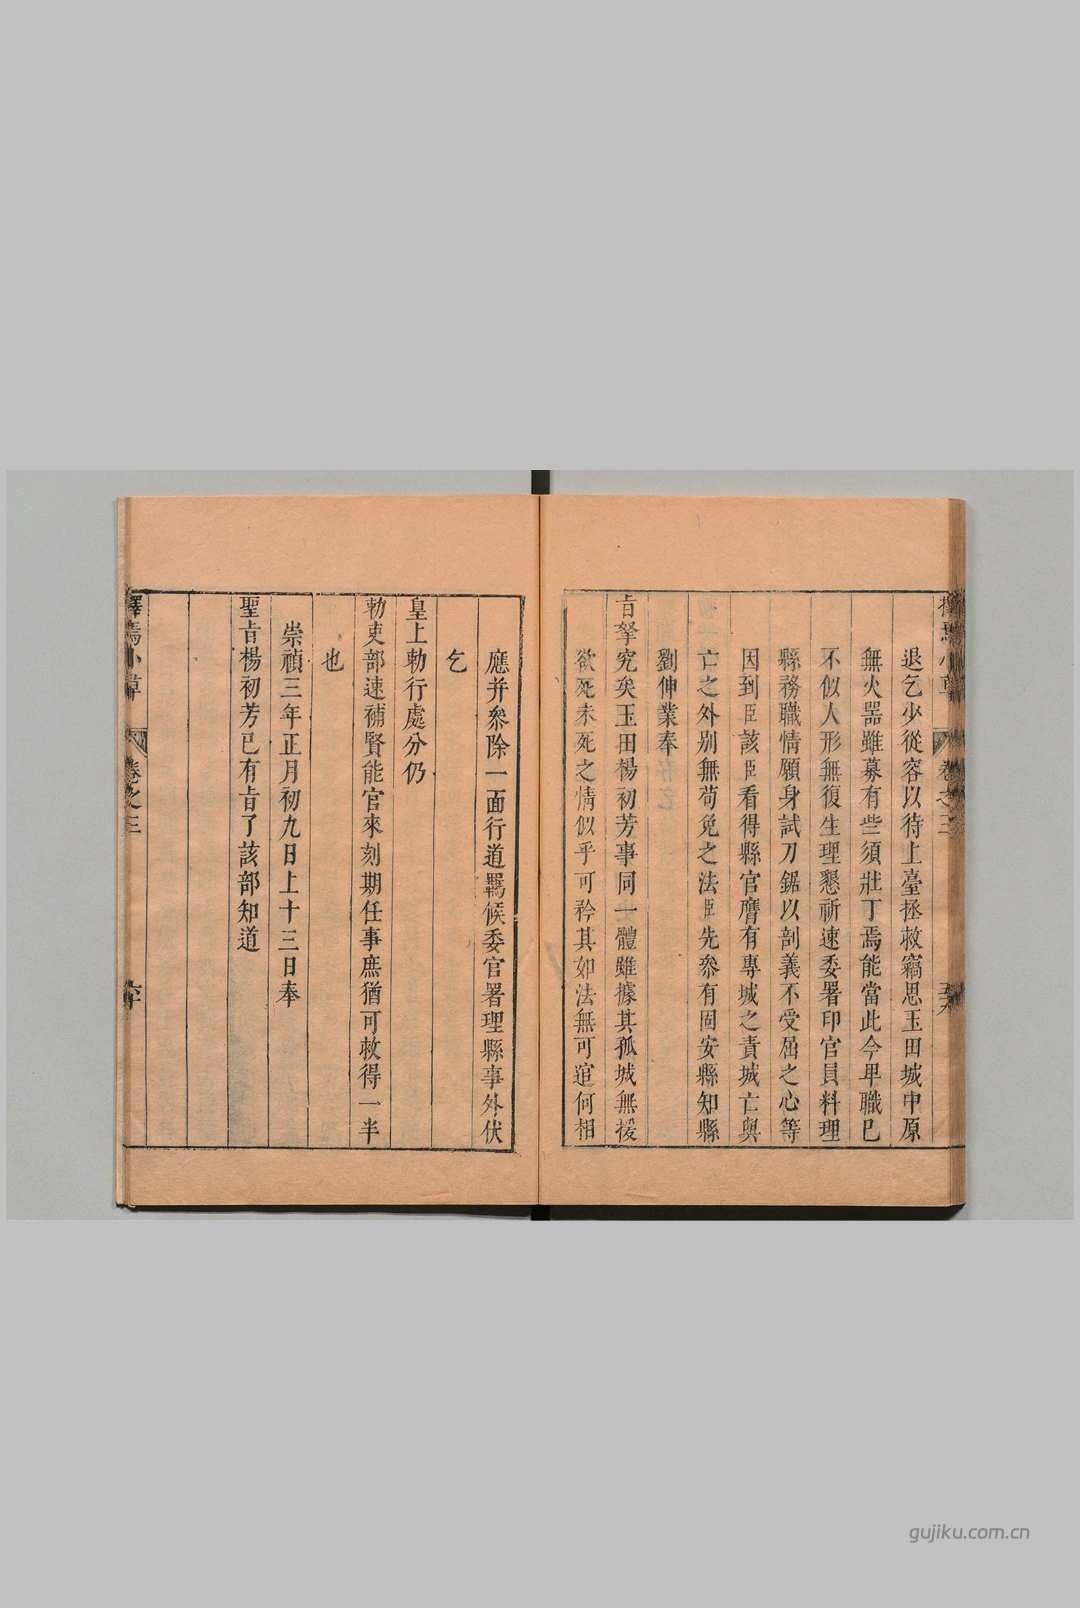 退乞少從容以待上臺拯救竊思玉田城中原
無火器雖募有些須壯丁焉能當此今卑職已
不似人形無復生理懇祈速委署印官員料理
縣務職情願身試刀鋸以剖義不受屈之心等
因到臣該臣看得縣官膺有專城之責城亡與
亡之外別無苟免之法臣先叅有固安縣知縣
劉伸業奉
旨拏究矣玉田楊初芳事同一體雖據其孤城無援
欲死未死之情似乎可矜其如法無可逭何相
卷之三
應并叅除一面行道羈候委官署理縣事外伏
乞
皇上勅行處分仍
勅吏部速補賢能官來刻期任事庶猶可救得一半
也
崇禎三年正月初九日上十三日奉
聖旨楊初芳已有旨了該部知道
小草
卷之三
gujiku.com.cn